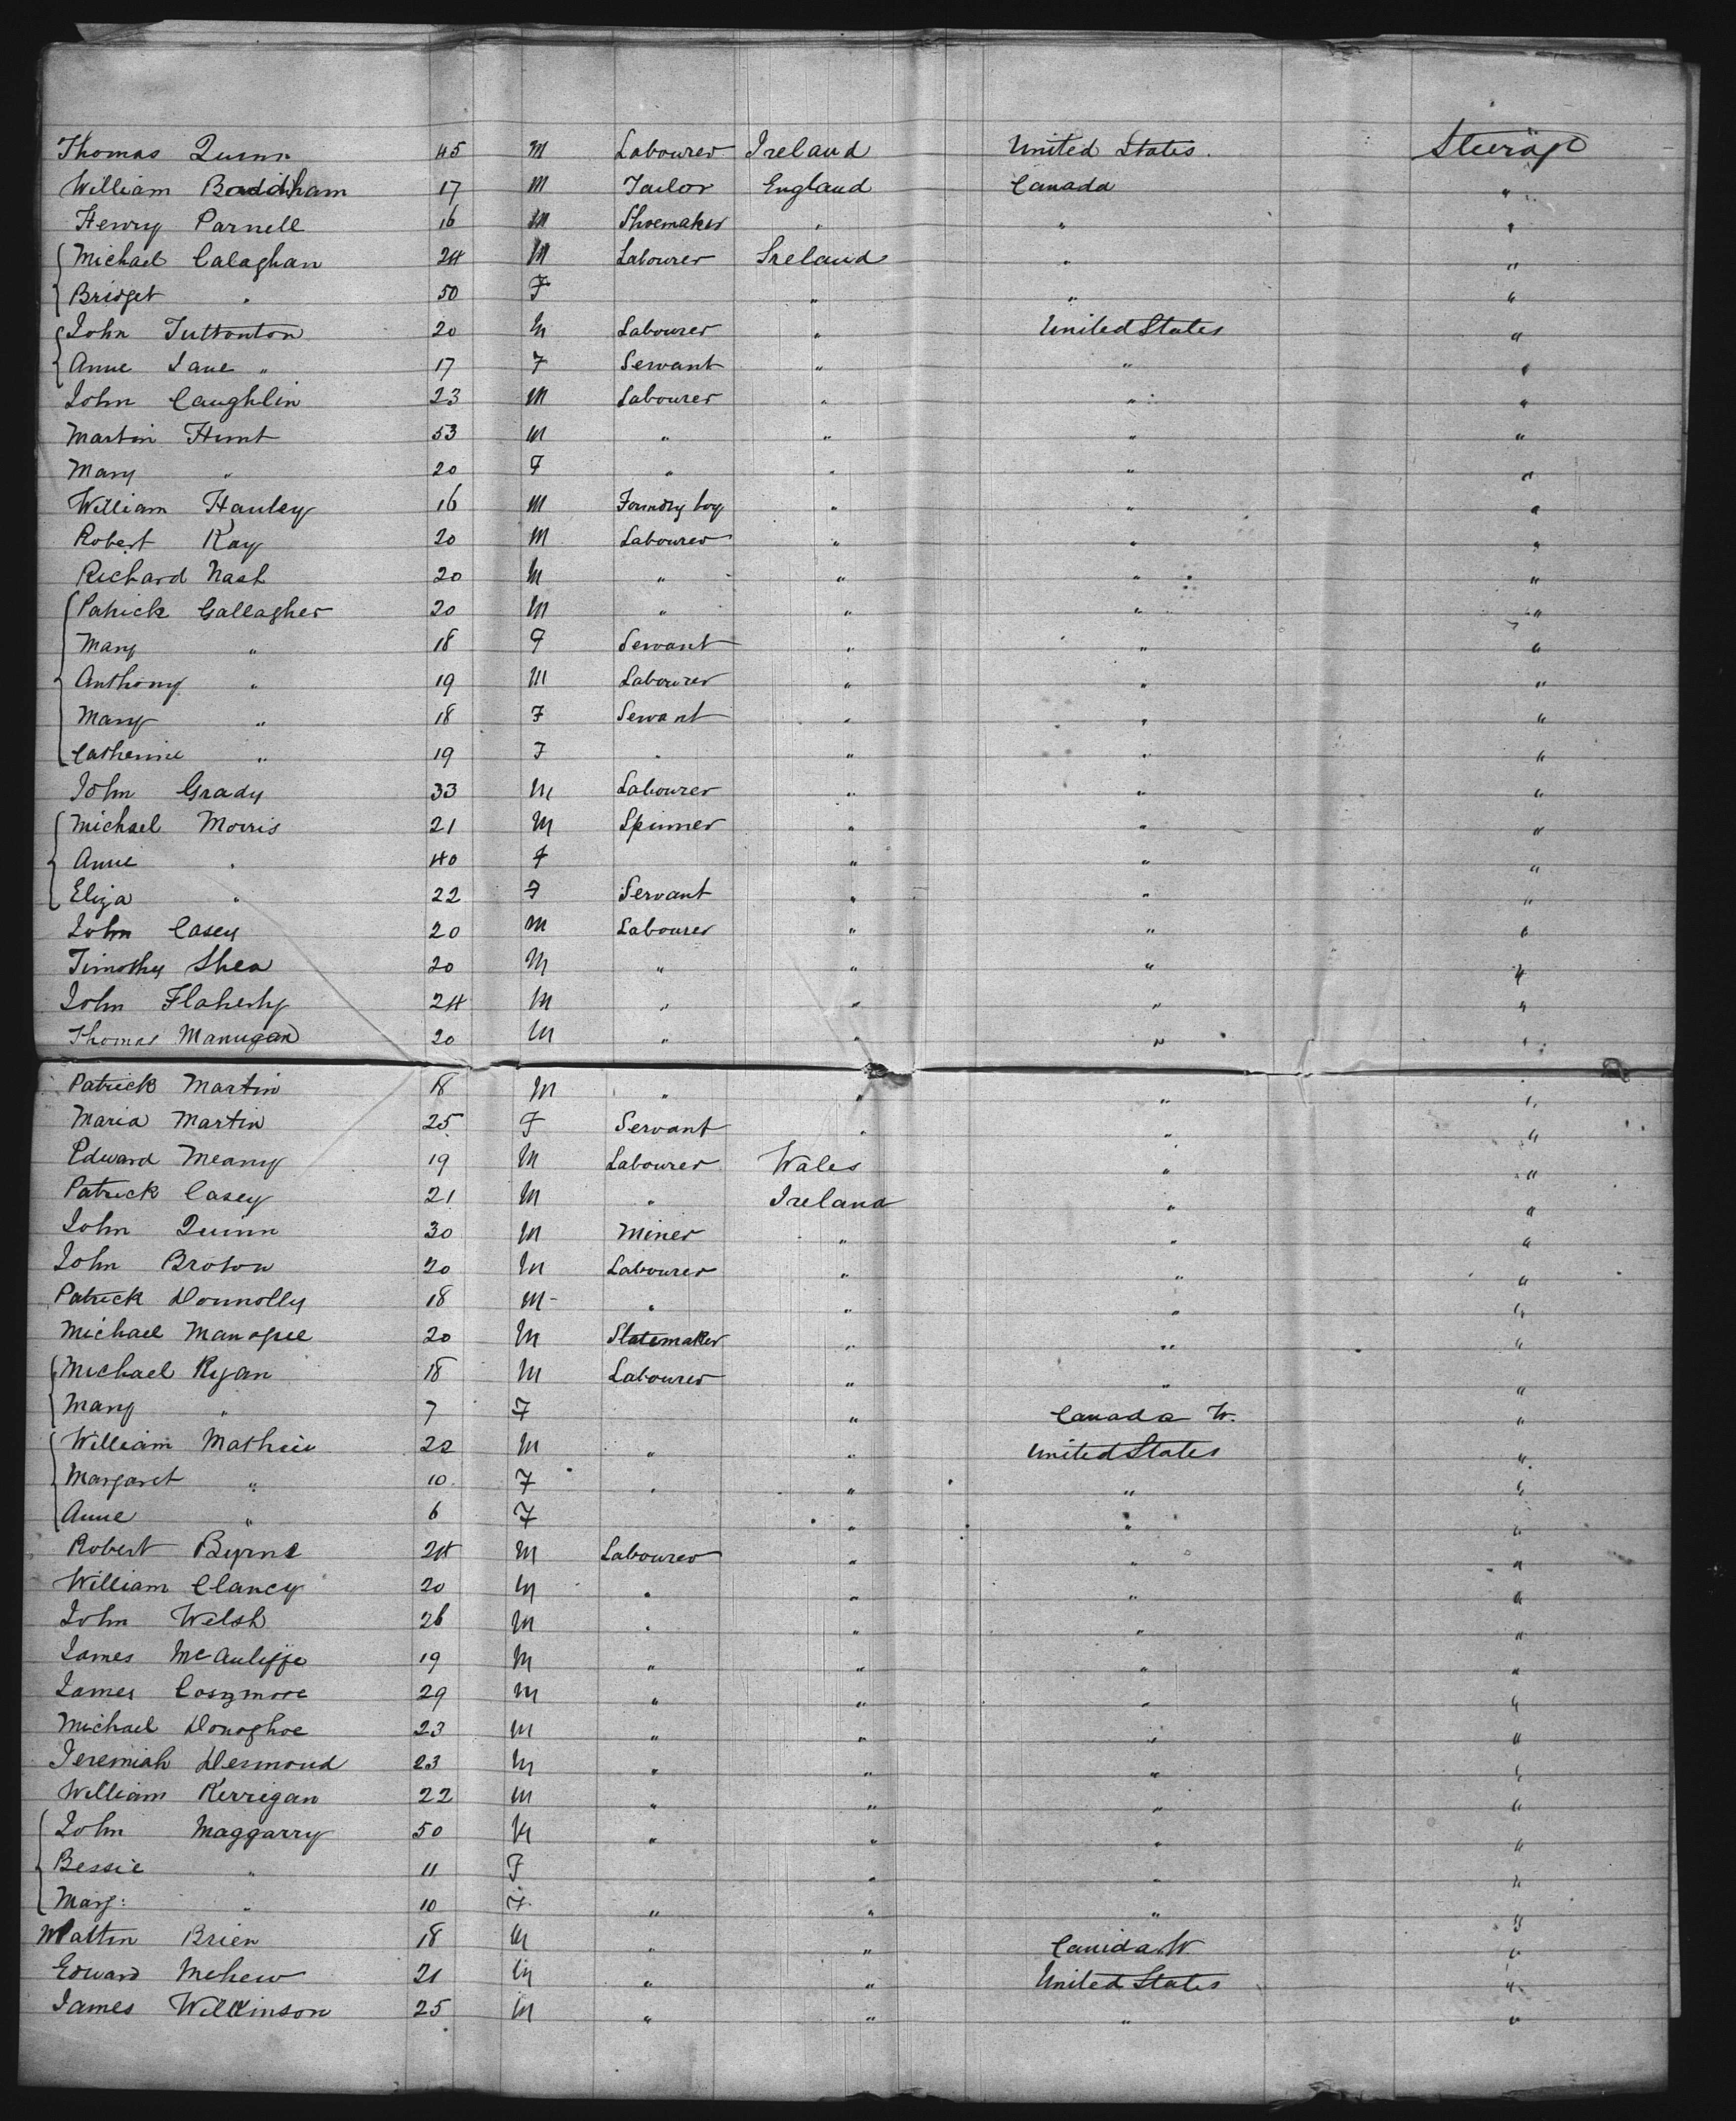 Thomas Quinn 45 M Labourer Ireland United States. Steerage
William Baddham 17 M Tailor England Canada "
Henry Parnell 16 M Shoemaker " " "
Michael Calaghan 24 M Labourer Ireland " "
Bridget " 50 F " " "
John Tuttonton 20 M Labourer " United States "
Anne Jane " 17 F Servant " " "
John Caughlin 23 M Labourer " " "
Martin Hunt 53 M " " " "
Mary " 20 F " " " "
William Hanley 16 M Foundry boy " " "
Robert Kay 20 M Labourer " " "
Richard Nash 20 M " " " "
Patrick Gallagher 20 M " " " "
Mary " 18 F Servant " " "
Anthony " 19 M Labourer " " "
Mary " 18 F Servant " " "
Catherine " 19 F " " " "
John Grady 33 M Labourer " " "
Michael Morris 21 M Spinner " " "
Anne " 40 F " " "
Eliza " 22 F Servant " " "
John Casey 20 M Labourer " " "
Timothy Shea 20 M " " " "
John Flaherty 24 M " " " "
Thomas Manugan 20 M " " " "
Patrick Martin 18 M " " " "
Maria Martin 25 F Servant " " "
Edward Meany 19 M Labourer Wales " "
Patrick Casey 21 M " Ireland " "
John Quinn 30 M Miner " " "
John Brown 20 M Labourer " " "
Patrick Donnolly 18 M " " " "
Michael 20 M Slatemaker " " "
Michael Ryan 18 M Labourer " " "
Mary " 7 F " Canada W. "
William Mathew 22 M " " United States "
Margaret " 10 F " " " "
Anne " 6 F " " "
Robert Byrne 24 M Labourer " " "
William Clancy 20 M " " " "
John Welsh 26 M " " " "
James McAuliffe 19 M " " " "
James Cosgmore 29 M " " " "
Michael Donoghoe 23 M " " " "
Jeremiah Desmond 23 M " " " "
William Kerrigan 22 M " " " "
John Maggarry 50 M " " " "
Bessie " 11 F " " "
Marg: " 10 F " " " "
Brien 18 M " " Canada W "
Edward Mehew 21 M " " United States "
James Wilkinson 25 M " " " "